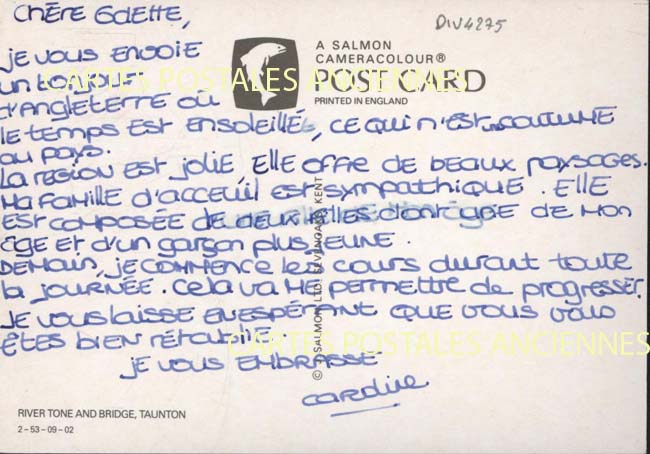 CHÈRE Odette,
DIV4275
je vous envoie
un bonjour
d'ANGLETERRE où
le temps est ensoleillé, ce qui n'est pas coutume
au pays.
La region est jolie, Elle offre de beaux paysages.
Ma famille d'acceuil est sympathique. Elle
est composée de deux filles dont une de mon
âge et d'un garçon plus jeune.
Demain, je commence les cours durant toute
la journée. Cela va me permettre de progresser.
Je vous laisse en espérant que vous vous
êtes bien rétablie.
je vous embrasse
Caroline
A SALMON
CAMERACOLOUR®
POST CARD
PRINTED IN ENGLAND
CARTES POSTALES ANCIENNES
CARTES POSTALES ANCIENNES
© J SALMON LTD, SEVENOAKS, KENT
RIVER TONE AND BRIDGE, TAUNTON
2–53–09–02